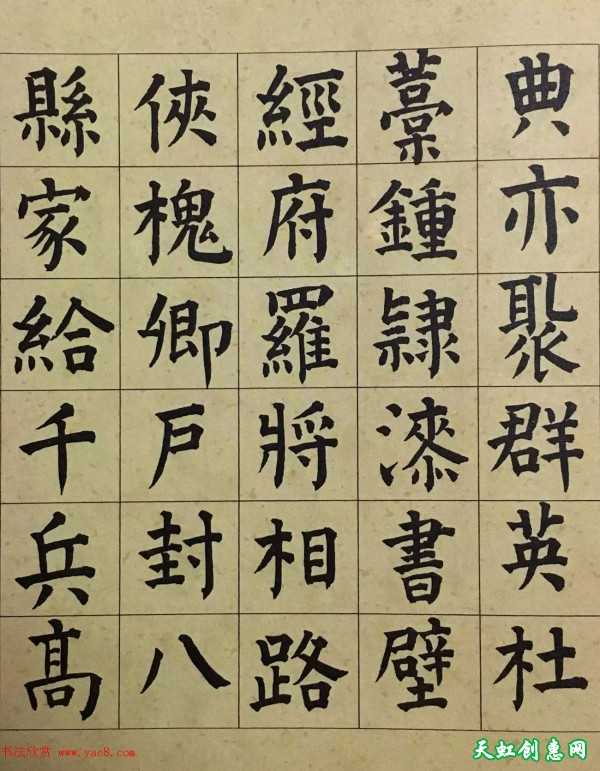 典亦聚群英杜
藁鍾隸漆書壁
經府羅將相路
俠槐卿戶封八
縣家給千兵高
书法欣赏 www.yac8.com
天虹创惠网